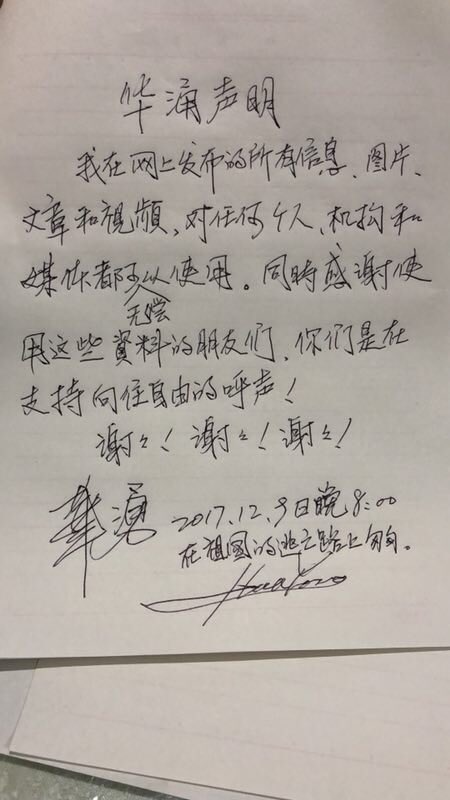 华涌声明
我在网上发布的所有信息、图片、
文章和视频,对任何个人、机构和
媒体都可以使用。同時感谢使
无偿
用这些資料的朋友们,你们是在
支持向往自由的呼声!
谢々!谢々!谢々!
華湧 2017.12.9日晚8:00
在祖國的逃亡路上